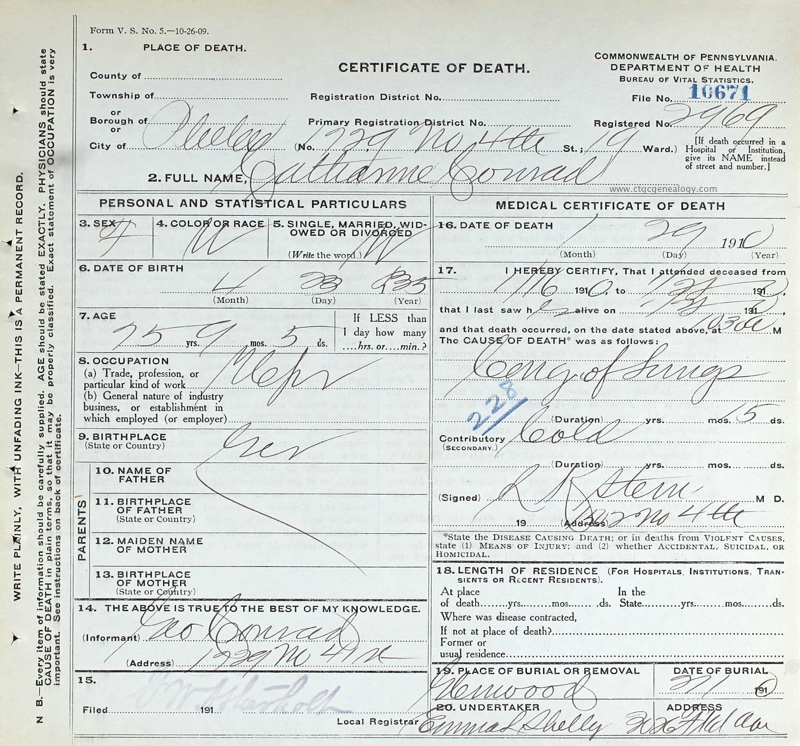 Form V. S. No. 5.—10-26-09.
1. PLACE OF DEATH.
County of
Township of
or
Borough of
or
City of
CERTIFICATE OF DEATH.
Registration District No.
Primary Registration District No.
(No. 1729 No 4th St.; 19 Ward.)
COMMONWEALTH OF PENNSYLVANIA.
DEPARTMENT OF HEALTH
BUREAU OF VITAL STATISTICS.
File No. 10671
Registered No. 2969
[If death occurred in a
Hospital or Institution,
give its NAME instead
of street and number.]
2. FULL NAME, Catharine Conrad
www.ctgcgenealogy.com
PERSONAL AND STATISTICAL PARTICULARS
3. SEX F
4. COLOR OR RACE W
5. SINGLE, MARRIED, WID-
OWED OR DIVORCED
(Write the word.) W
6. DATE OF BIRTH
4 23 1835
(Month) (Day) (Year)
7. AGE
75 yrs. 9 mos. 5 ds.
If LESS than
1 day how many
hrs. or min.?
8. OCCUPATION
(a) Trade, profession, or
particular kind of work
(b) General nature of industry
business, or establishment in
which employed (or employer)
9. BIRTHPLACE
(State or Country) Ger
PARENTS
10. NAME OF
FATHER
11. BIRTHPLACE
OF FATHER
(State or Country)
12. MAIDEN NAME
OF MOTHER
13. BIRTHPLACE
OF MOTHER
(State or Country)
14. THE ABOVE IS TRUE TO THE BEST OF MY KNOWLEDGE.
(Informant) Geo Conrad
(Address) 1729 No 4th St
15.
Filed 191
Local Registrar
MEDICAL CERTIFICATE OF DEATH
16. DATE OF DEATH
1 29 1910
(Month) (Day) (Year)
17. I HEREBY CERTIFY, That I attended deceased from
1/16 1910, to 191
that I last saw h alive on 191
and that death occurred, on the date stated above, at M
The CAUSE OF DEATH* was as follows:
Cong. of Lungs
228
(Duration) yrs. mos. 15 ds.
Contributory Cold
(SECONDARY.)
(Duration) yrs. mos. ds.
(Signed) Stern M D.
19 (Address) No 4th
*State the DISEASE CAUSING DEATH; or in deaths from VIOLENT CAUSES,
state (1) MEANS OF INJURY; and (2) whether ACCIDENTAL, SUICIDAL, OR
HOMICIDAL.
18. LENGTH OF RESIDENCE (FOR HOSPITALS, INSTITUTIONS, TRAN-
SIENTS OR RECENT RESIDENTS).
At place In the
of death yrs. mos. ds. State yrs. mos. ds.
Where was disease contracted,
If not at place of death?
Former or
usual residence
19. PLACE OF BURIAL OR REMOVAL
DATE OF BURIAL
191
20. UNDERTAKER
Emma L Shelly
ADDRESS
WRITE PLAINLY, WITH UNFADING INK—THIS IS A PERMANENT RECORD.
N B.—Every item of information should be carefully supplied. AGE should be stated EXACTLY. PHYSICIANS should state
CAUSE OF DEATH in plain terms, so that it may be properly classified. Exact statement of OCCUPATION is very
important. See instructions on back of certificate.